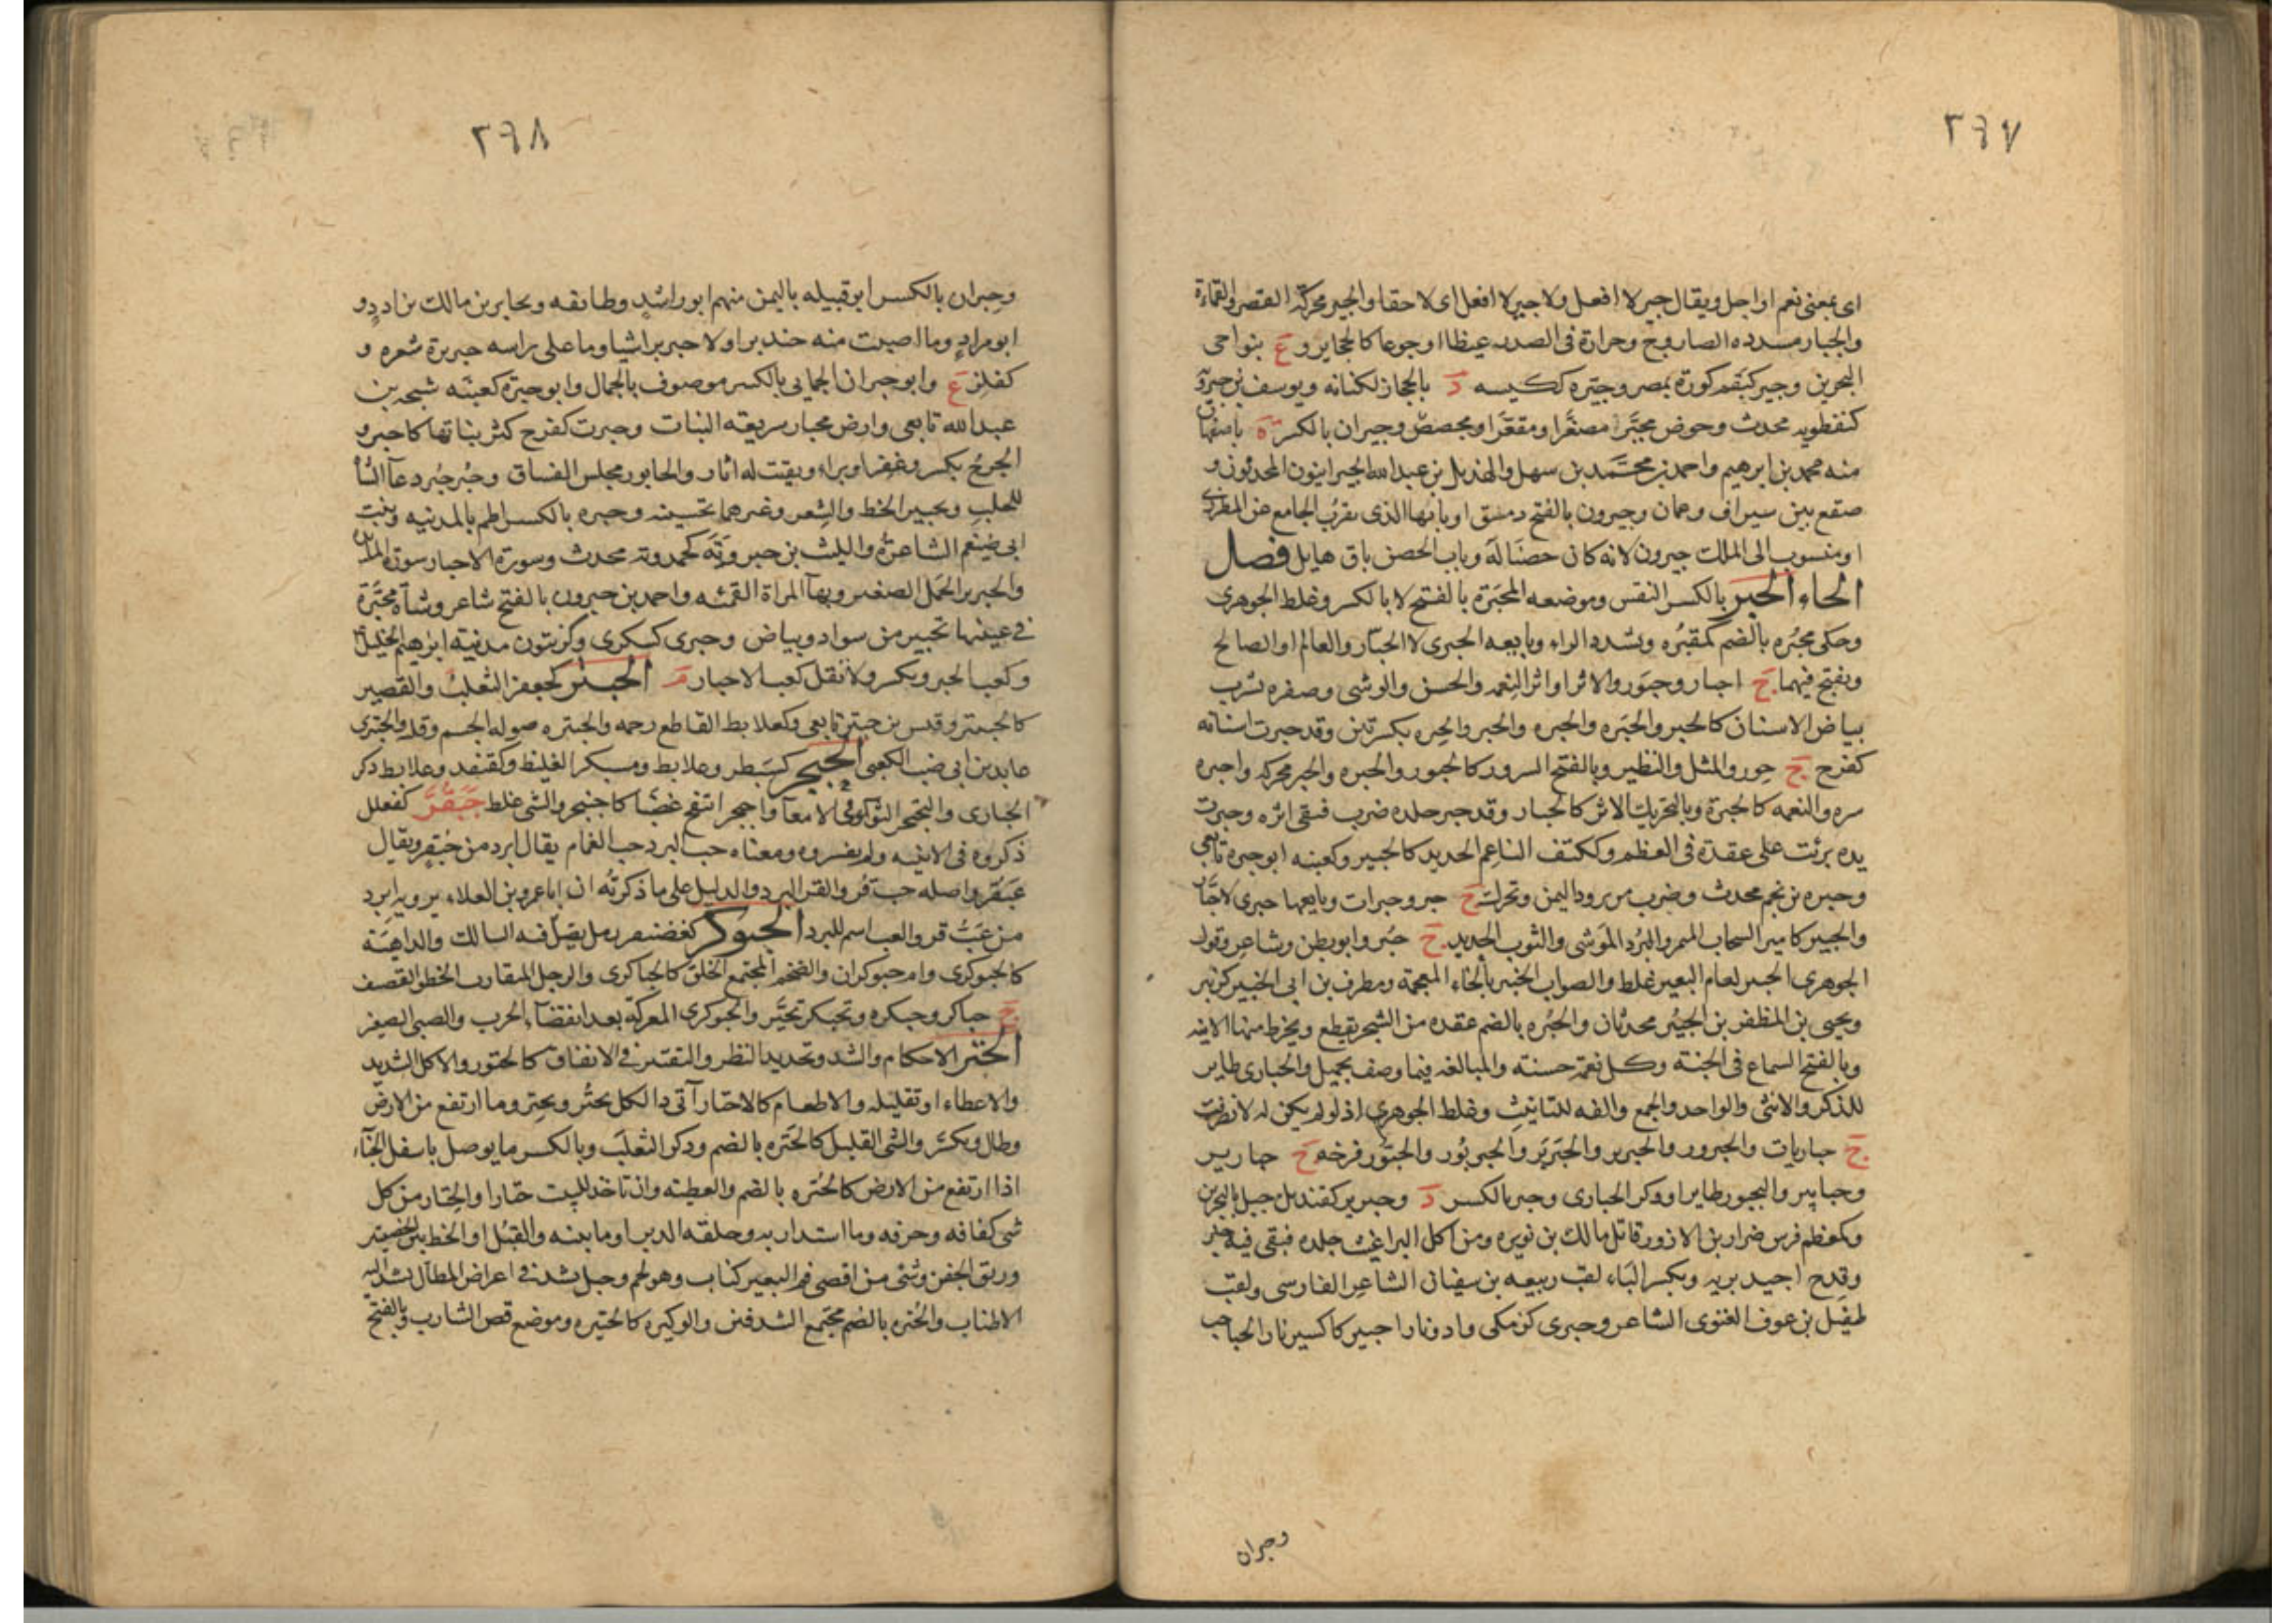 ٢٦٧
اى بمعنى نعم او اجل ويقال جير لا افعل ولا جير لا افعل اى لا حقا والجير محركة القصر والقماءة
والجيار مشدده الصاروج وحرارة فى الصدر غيظا او جوعا كالجاير و ع بنواحى
البحرين وجير كبقم كورة بمصر وجيره ككيسه د بالحجاز لكنانه ويوسف بن جيرويه
كنفطويه محدث وحوض مجيَّر مصغَّرا ومقعَّرا ومجصص وجيران بالكسر ة باصفهان
منه محمد بن ابرهيم واحمد بن محمد بن سهل والهذيل بن عبد الله الجيرانيون المحدثون و
صقع بين سيراف وعمان وجيرون بالفتح دمشق او بابها الذى بقرب الجامع عن المطرزى
او منسوب الى الملك جيرون لانه كان حصنا له وباب الحصن باق هايل فصل
الحاء الحبر بالكسر النقس وموضعه المحبَرة بالفتح لا بالكسر وغلط الجوهرى
وحكى محبُره بالضم كمقبُره وتشدد الراء وبايعه الحبرى لا الحبّار والعالم او الصالح
ويفتح فيهما ج احبار وحبور والاثر او اثر النعمه والحسن والوشى وصفره تشرب
بياض الاسنان كالحبر والحبَره والحبره والحبر والحِبِره بكسرتين وقد حبرت اسنانه
كفرح ج حبور والمثل والنظير وبالفتح السرور كالحبور والحبره والحبر محركه واحبره
سره والنعمه كالحبرة وبالتحريك الاثر كالحبار وقد حبر جلده ضرب فبقى اثره وحبرت
يده برئت على عقدة فى العظم وككتف الناعم الجديد كالحبير وكعنبه ابو حبره تابعى
وحبره بن نجم محدث وضرب من برود اليمن وتحرك ج حبر وحبرات وبايعها حبرى لا حبَّار
والحبير كامير السحاب المنمر والبُرد الموشى والثوب الجديد ج حُبر وابو بطن وشاعر وقول
الجوهرى الحبير لغام البعير غلط والصواب الخبير بالخاء المعجمة ومطرف بن ابى الحبير كزبير
ويحيى بن المظفر بن الحبير محدثان والحُبره بالضم عقده من الشجر تقطع ويخرط منها الانيه
وبالفتح السماع فى الجنة وكل نغمة حسنة والمبالغه فيما وصف بجميل والحبارى طاير
للذكر والانثى والواحد والجمع والفه للتانيث وغلط الجوهرى اذ لو لم يكن له لانصرفت
ج حباريات والحبرور والحبرير والحَبَربَر والحُبربُور والحبُّور فرخه ج حبارير
وحبابير واليحبور طاير او ذكر الحبارى وحبر بالكسر د وحبرير كقنديل جبل بالبحرين
وكمعظم فرس ضرار بن الازور قاتل مالك بن نويره ومن اكل البراغيث جلده فبقى فيه حبر
وقدح اجيد بريه وبكسر الباء لقب ربيعه بن سفيان الشاعر الفارسى ولقب
طفيل بن عوف الغنوى الشاعر وحبرى كزمكى واد ونار احبير كاكسير نار الحباحب
وحبران
٢٦٨
وحِبران بالكسر ابو قبيله باليمن منهم ابو راشد وطائفه ويحابر بن مالك بن ادد و
ابو مراد وما اصبت منه حنبرا ولا حبربرا شيا وما على راسه حبربرة شعره و
كفلز ع وابو حبران الحمانى بالكسر موصوف بالجمال وابو حبرة كعنبَه شيحه بن
عبد الله تابعى وارض محبار سريعه النبات وحبرت كفرح كثر نباتها كاحبر و
الجرح نكس وغفر او برا وبقيت له اثار والحابور مجلس الفساق وحُبر حُبر دعآ الشأ
للحلب وتحبير الخط والشعر وغيرهما تحسينه وحبره بالكسر اطم بالمدينه وبنت
ابى ضيغم الشاعره والليث بن حبرويَه كحمدويه محدث وسورة الاحبار سورة المائده
والحبربر الجمل الصغير وبهآ المراة القمئه واحمد بن حبرون بالفتح شاعر وشاة محبّرة
فى عينيها تحبير من سواد وبياض وحبرى كسكرى وكزيتون مدينه ابرهيم الخليل
وكعب الحبر ويكسر ولا تقل كعب الاحبار م الحبتر كجعفر الثعلب والقصير
كالحبيتر وقيس بن حبتر تابعى وكعلابط القاطع رحمه والحبتره ضوله الجسم وقلة والحبترى
عابد بن ابى ضب الكعبى الحبجر كسبَطر وعلابط ومسبكر الغليظ وكقنفد وعلابط ذكر
الحبارى والتحبجر التوآ فى الامعآ واحبجر انتفخ غضبًا كاحبنجر والشى غلظ حَبَقُرُّ كفعلل
ذكروه فى الابنيه ولم يفسروه ومعناه حب البرد حب الغمام يقال ابرد من حبقر ويقال
عَبَقُر واصله حب قُر والقر البرد والدليل على ما ذكرته ان ابا عمرو بن العلاء يرويه ابرد
من عَبُّ قر والعب اسم للبرد الحبوكر كغضنفر رمل يضلّ فيه السالك والداهيَة
كالحبوكرى وام حبوكران والضخم المجتمع الخلق كالحباكرى والرجل المتقارب الخطو القصف
ج حباكر وحبكره وتحبكر تحيَّر والحبوكرى المعركة بعد انقضآء الحرب والصبى الصغير
الحتر الاحكام والشد وتحديد النظر والتقتير فى الانفاق كالحتور والاكل الشديد
والاعطاء او تقليله والاطعام كالاحتار آتى ذا الكل يحتُر ويحتِر وما ارتفع من الارض
وطال ويكسَر والشى القليل كالحُتره بالضم وذكر الثعلب وبالكسر ما يوصل باسفل الخبآء
اذا ارتفع من الارض كالحُتره بالضم والعطيه وان تاخذ للبيت حتارا والحِتار من كل
شى كفافه وحرفه وما استدار به وحلقه الدبر او ما بينه والقبُل او الخط بين الخصيتين
وريق الجفن وشى من اقصى فم البعير كناب وهو لحم وحبل يشد فى اعراض المظال تشد اليه
الاطناب والحُتره بالضم مجتمع الشدقين والوكيره كالحتيره وموضع قص الشارب وبالفتح